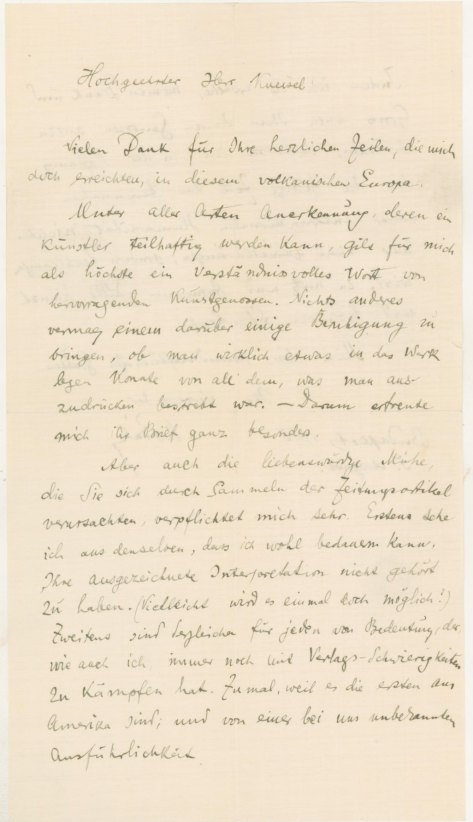 Hochgeehrter Herr Kneisel
Vielen Dank für Ihre herzlichen Zeilen, die mich
doch erreichten, in diesem volkanischen Europa.
Unter aller Arten Anerkennung, deren ein
Künstler teilhaftig werden kann, gilt für mich
als höchste ein Verständnisvolles Wort von
hervorragenden Kunstgenossen. Nichts anderes
vermag einem darüber einige Beruhigung zu
bringen, ob man wirklich etwas in das Werk
legen konnte von all' dem, was man aus-
zudrücken bestrebt war. — Darum erfreute
mich Ihr Brief ganz besonders.
Aber auch die liebenswürdge Mühe,
die Sie sich durch Sammeln der Zeitungsartikel
verursachten, verpflichtet mich sehr. Erstens sehe
ich aus denselben, dass ich wohl bedauern kann,
Ihre ausgezeichnete Interpretation nicht gehört
zu haben. (Vielleicht wird es einmal doch möglich!)
Zweitens sind dergleichen für jeden von Bedeutung, der
wie auch ich immer noch mit Verlags-Schwierigkeiten
zu kämpfen hat. Zumal, weil es die ersten aus
Amerika sind; und von einer bei uns unbekannten
Ausführlichkeit